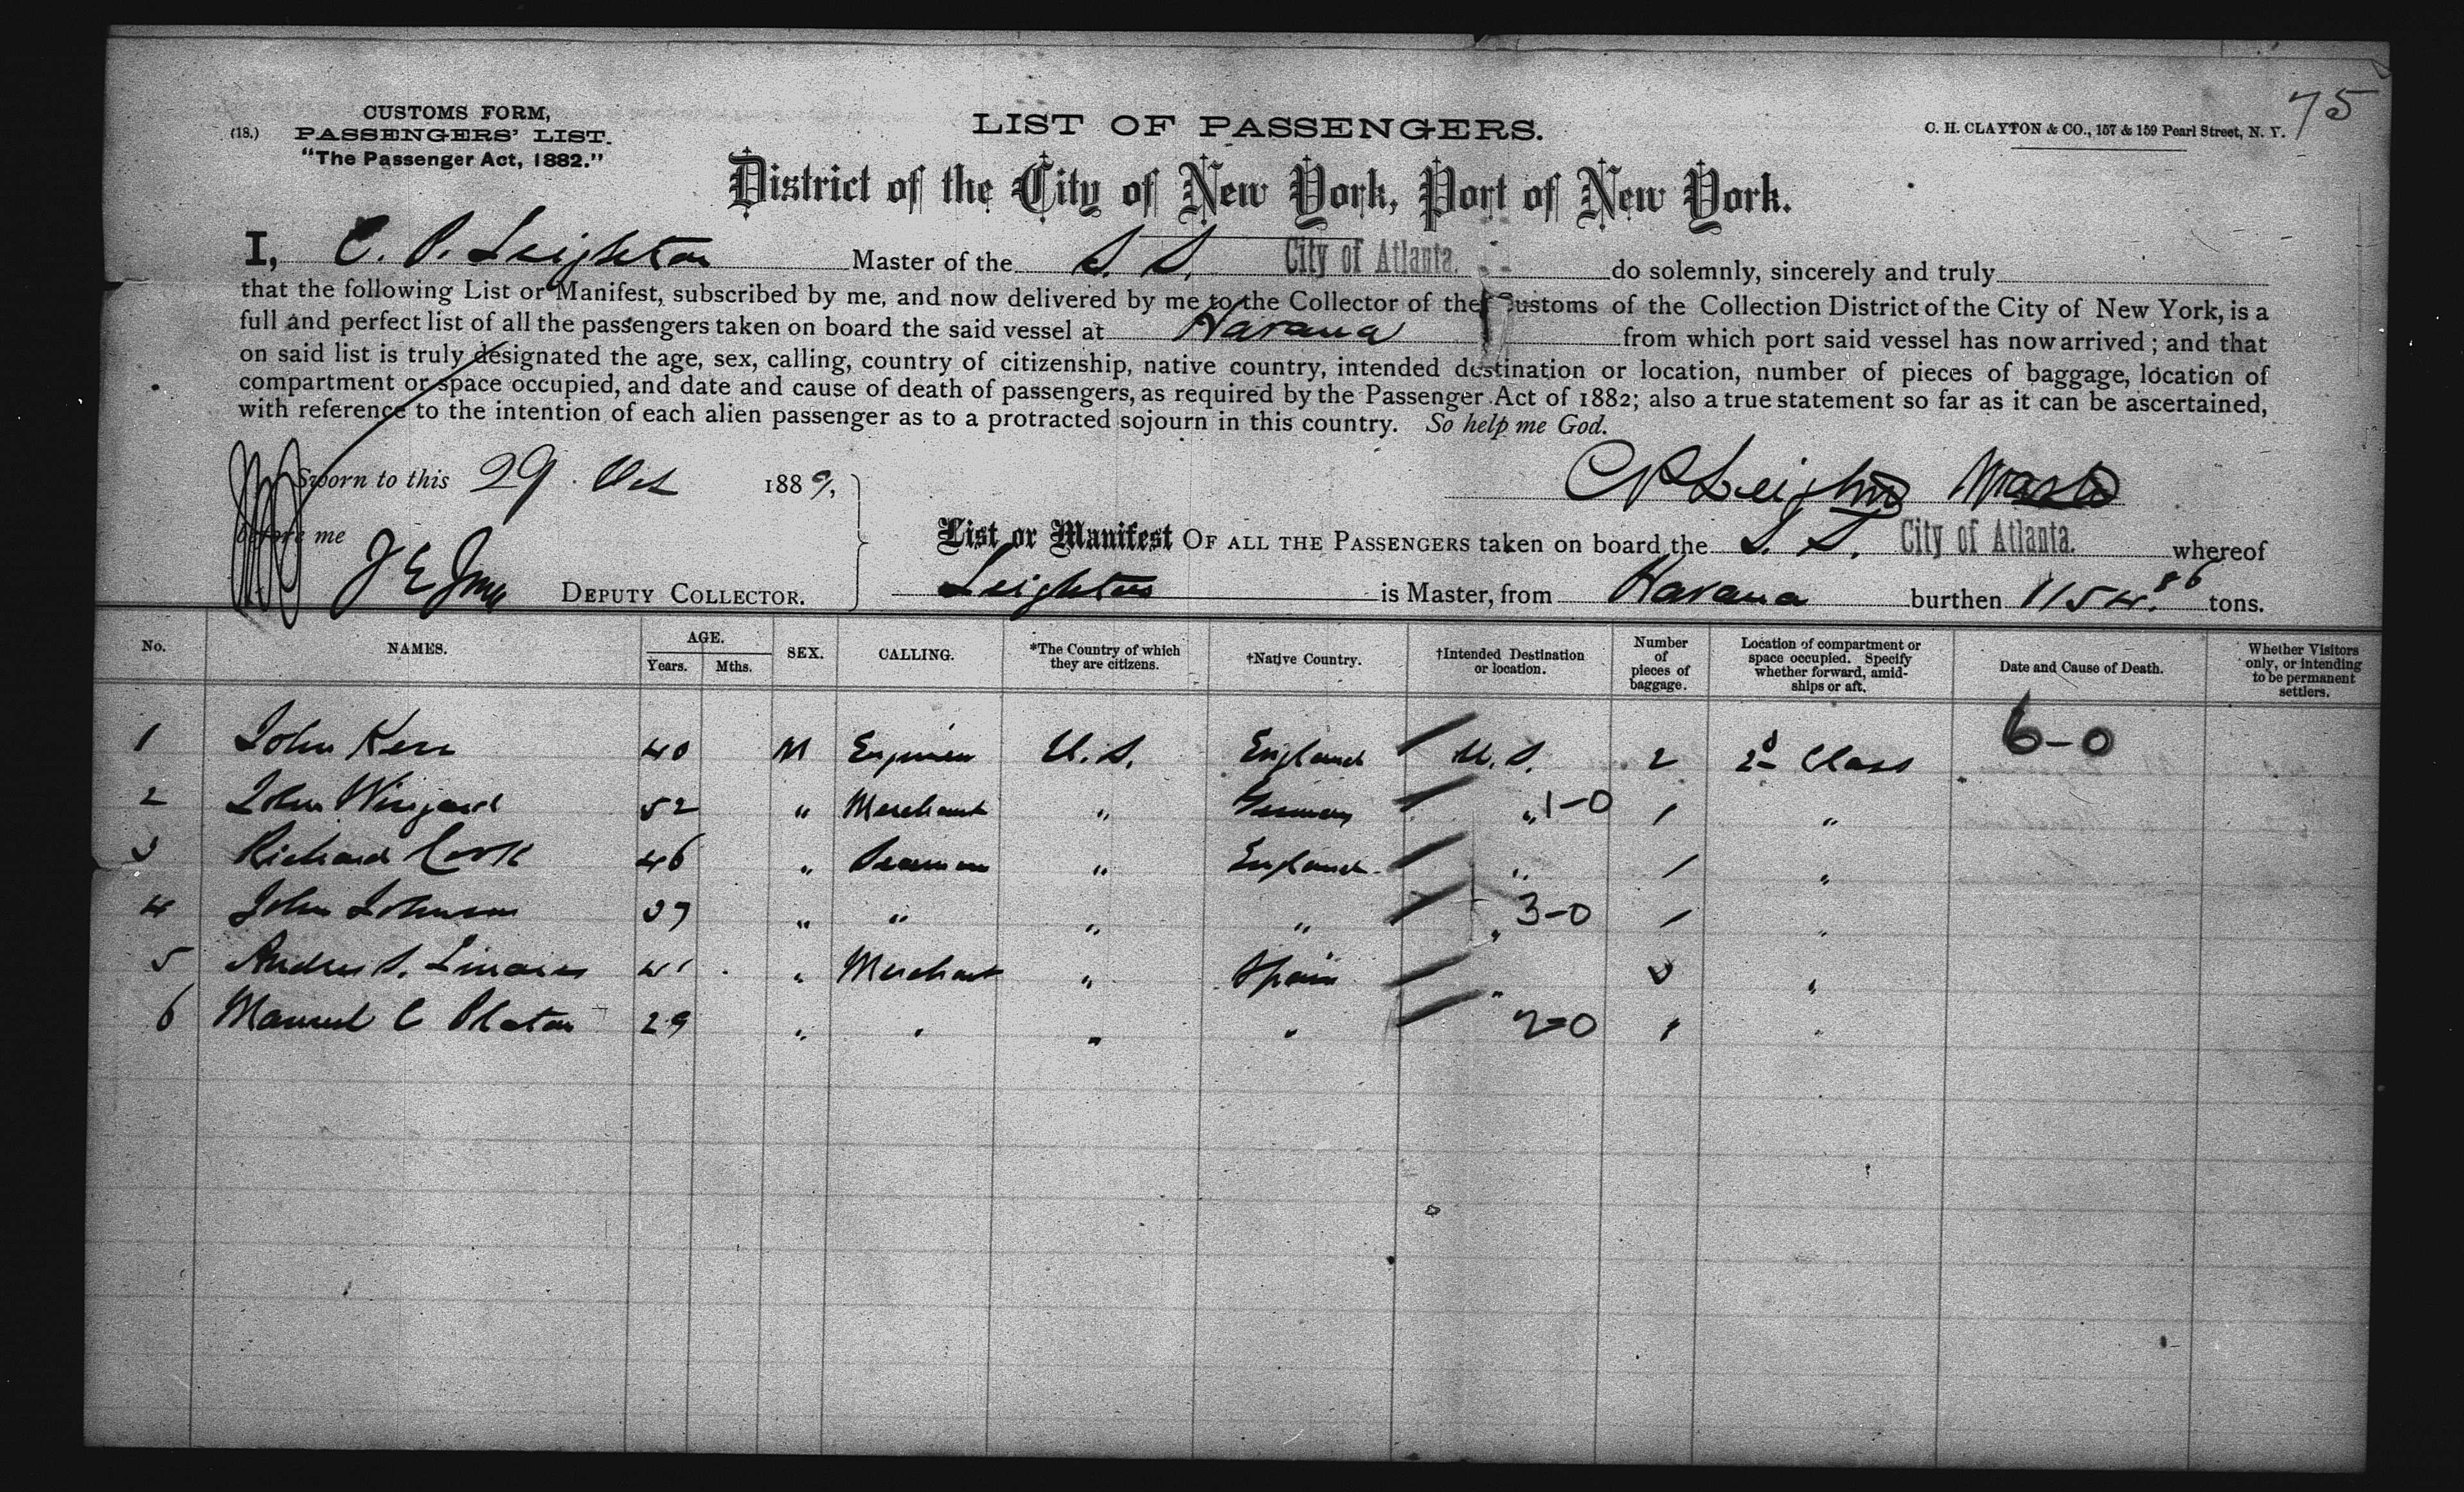 75
CUSTOMS FORM,
(18.) PASSENGERS' LIST.
"The Passenger Act, 1882."
LIST OF PASSENGERS.
C. H. CLAYTON & CO., 157 & 159 Pearl Street, N. Y.
District of the City of New York, Port of New York.
I, C. P. Leighton Master of the S. S. City of Atlanta. do solemnly, sincerely and truly
that the following List or Manifest, subscribed by me, and now delivered by me to the Collector of the Customs of the Collection District of the City of New York, is a
full and perfect list of all the passengers taken on board the said vessel at Havana from which port said vessel has now arrived; and that
on said list is truly designated the age, sex, calling, country of citizenship, native country, intended destination or location, number of pieces of baggage, location of
compartment or space occupied, and date and cause of death of passengers, as required by the Passenger Act of 1882; also a true statement so far as it can be ascertained,
with reference to the intention of each alien passenger as to a protracted sojourn in this country. So help me God.
Sworn to this 29 Oct 1889, CP Leighton Master
before me
J E DEPUTY COLLECTOR.
List or Manifest OF ALL THE PASSENGERS taken on board the S. S. City of Atlanta. whereof
Leighton is Master, from Havana burthen 1154.86 tons.
No. NAMES. AGE. Years. Mths. SEX. CALLING. *The Country of which they are citizens. †Native Country. †Intended Destination or location. Number of pieces of baggage. Location of compartment or space occupied. Specify whether forward, amidships or aft. Date and Cause of Death. Whether Visitors only, or intending to be permanent settlers.
1 John Kerr 40 M Engineer U. S. England U. S. 2 2d Class 6-0
2 John 52 " Merchant " Germany " 1-0 1 "
3 Richard Cook 46 " Seaman " England " 1 "
4 John Johnson 37 " " " " " 3-0 1 "
5 Andres S. Linares 41 " Merchant " Spain " 3 "
6 Manuel C Platon 29 " " " " 2-0 1 "